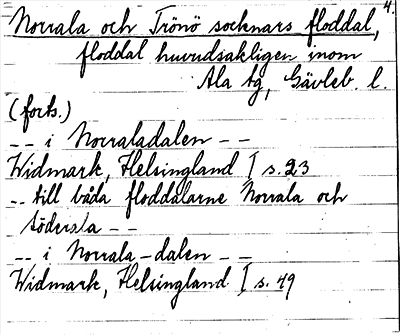 4.
Norrala och Trönö socknars floddal,
floddal huvudsakligen inom
Ala tg, Gävleb. l.
(forts.)
-- i Norraladalen --
Widmark, Helsingland I s. 23
-- till båda floddalarne Norrala och
Söderala --
-- i Norrala-dalen --
Widmark, Helsingland I s. 49